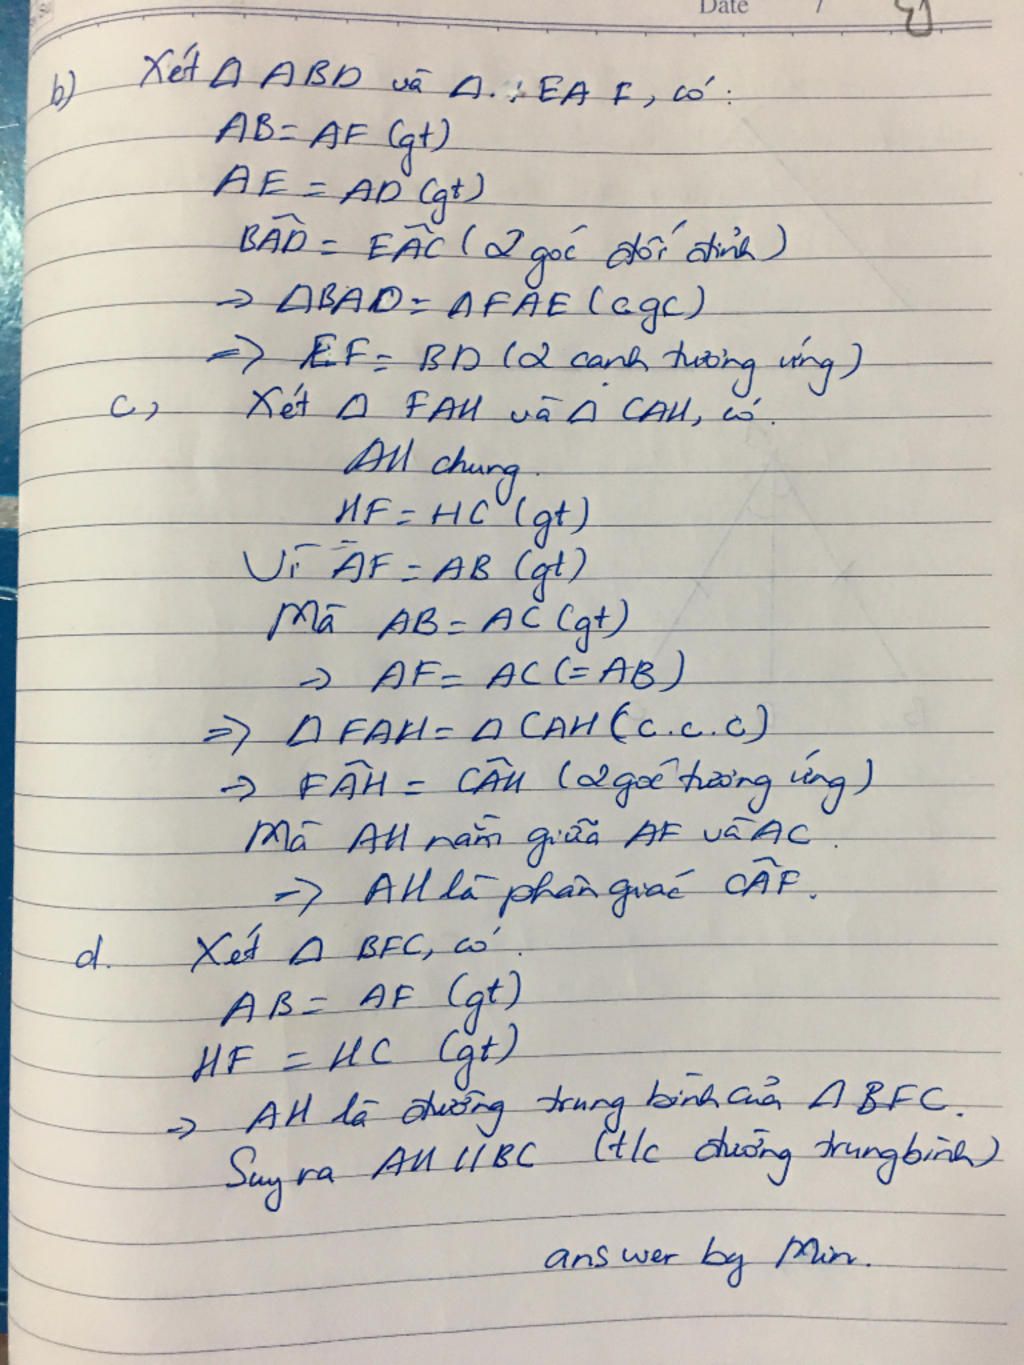 Date /
b) Xét Δ ABD và Δ EAF, có:
AB = AF (gt)
AE = AD (gt)
BAD̂ = EAĈ (2 góc đối đỉnh)
→ ΔBAD = ΔFAE (cgc)
=> EF = BD (2 cạnh tương ứng)
c, Xét Δ FAH và Δ CAH, có.
AH chung.
HF = HC (gt)
Vì AF = AB (gt)
Mà AB = AC (gt)
→ AF = AC (= AB)
=> Δ FAH = Δ CAH (c.c.c)
→ FÂH = CÂH (2 góc tương ứng)
Mà AH nằm giữa AF và AC.
=> AH là phân giác CÂF.
d. Xét Δ BFC, có.
AB = AF (gt)
HF = HC (gt)
→ AH là đường trung bình của Δ BFC.
Suy ra AH // BC (t/c đường trung bình)
answer by Min.